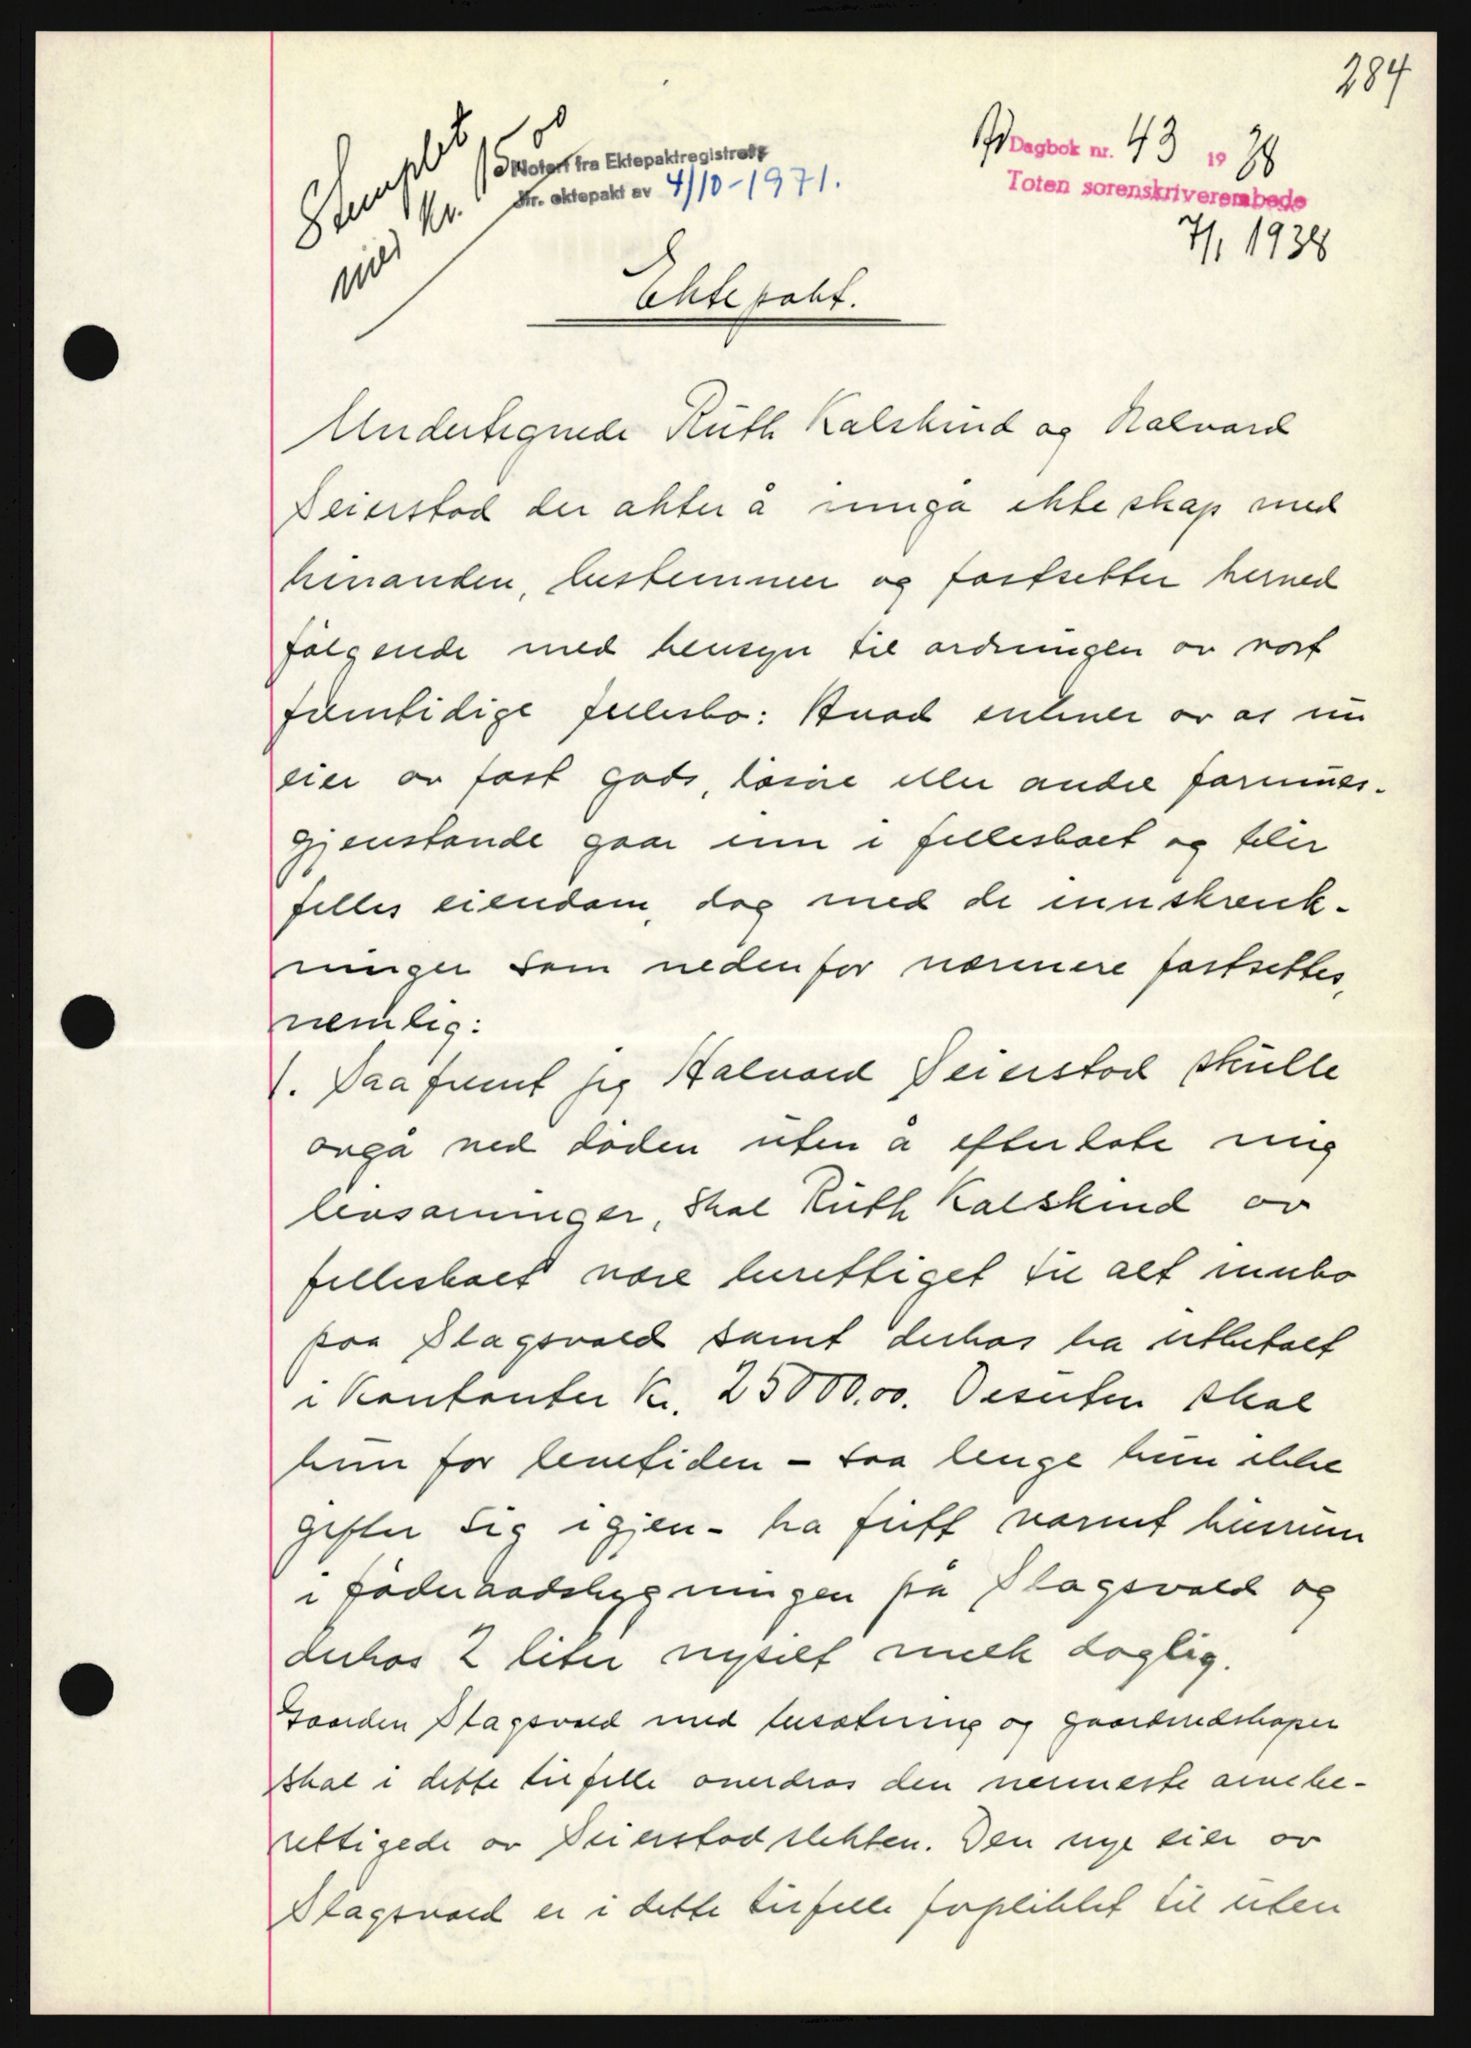 284
Stemplet
med kr. 15.00
Notert fra Ektepaktregistret
Jfr. ektepakt av 4/10-1971.
Dagbok nr. 43 1938
Toten sorenskriverembede
7/1 1938
Ektepakt.
Undertegnede Ruth Kalskind og Halvard
Seierstad der akter å inngå ekteskap med
hinanden, bestemmer og fastsetter herved
følgende med hensyn til ordningen av vort
fremtidige fellesbo: Hvad enhver av os nu
eier av fast gods, løsøre eller andre formues-
gjenstande gaar inn i fellesboet og blir
felles eiendom, dog med de innskrenk-
ninger som nedenfor nærmere fastsettes,
nemlig:
1. Saafremt jeg Halvard Seierstad skulle
avgå ved døden uten å efterlate mig
livsarvinger, skal Ruth Kalskind av
fellesboet være berettiget til alt innbo
paa Slagsvold samt derhos ha utbetalt
i kontanter kr. 25000.00. Desuten skal
hun for levetiden - saa lenge hun ikke
gifter sig igjen - ha fritt varmt husrum
i føderaadsbygningen på Slagsvold og
derhos 2 liter nysilt melk daglig.
Gaarden Slagsvold med besætning og gaardsredskaper
skal i dette tilfelle overdras den nermeste arvebe-
rettigede av Seierstadslekten. Den nye eier av
Slagsvold er i dette tilfelle forpliktet til uten